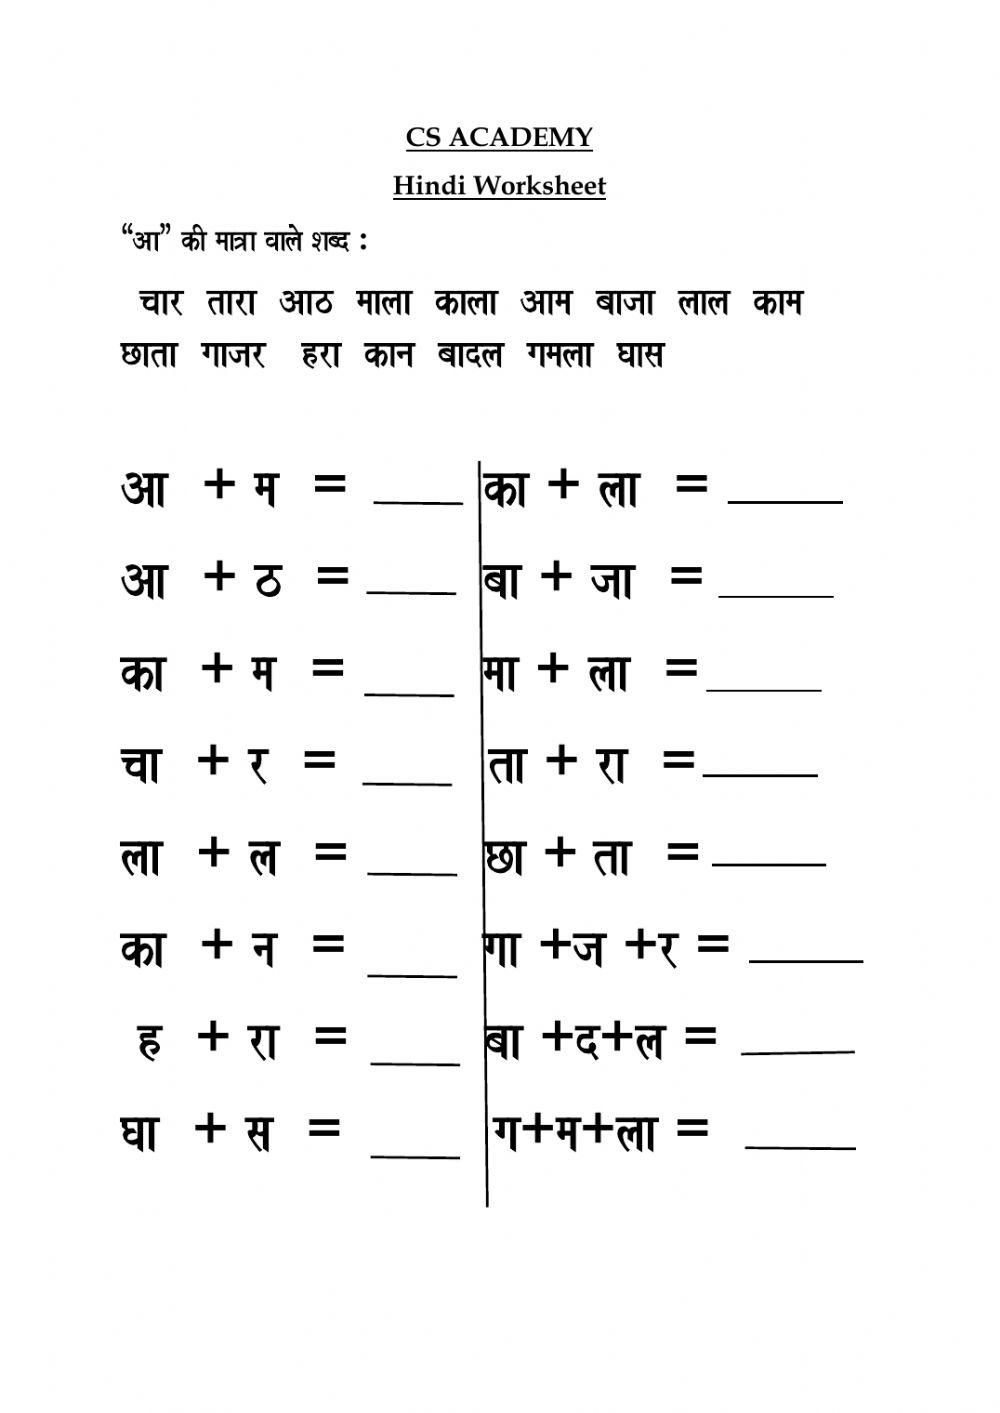 CS ACADEMY
Hindi Worksheet
“आ” की मात्रा वाले शब्द :
चार तारा आठ माला काला आम बाजा लाल काम
छाता गाजर हरा कान बादल गमला घास
आ + म = ____
आ + ठ = ____
का + म = ____
चा + र = ____
ला + ल = ____
का + न = ____
ह + रा = ____
घा + स = ____
का + ला = _____
बा + जा = _____
मा + ला = _____
ता + रा = _____
छा + ता = _____
गा +ज +र = _____
बा +द+ल = _____
ग+म+ला = _____